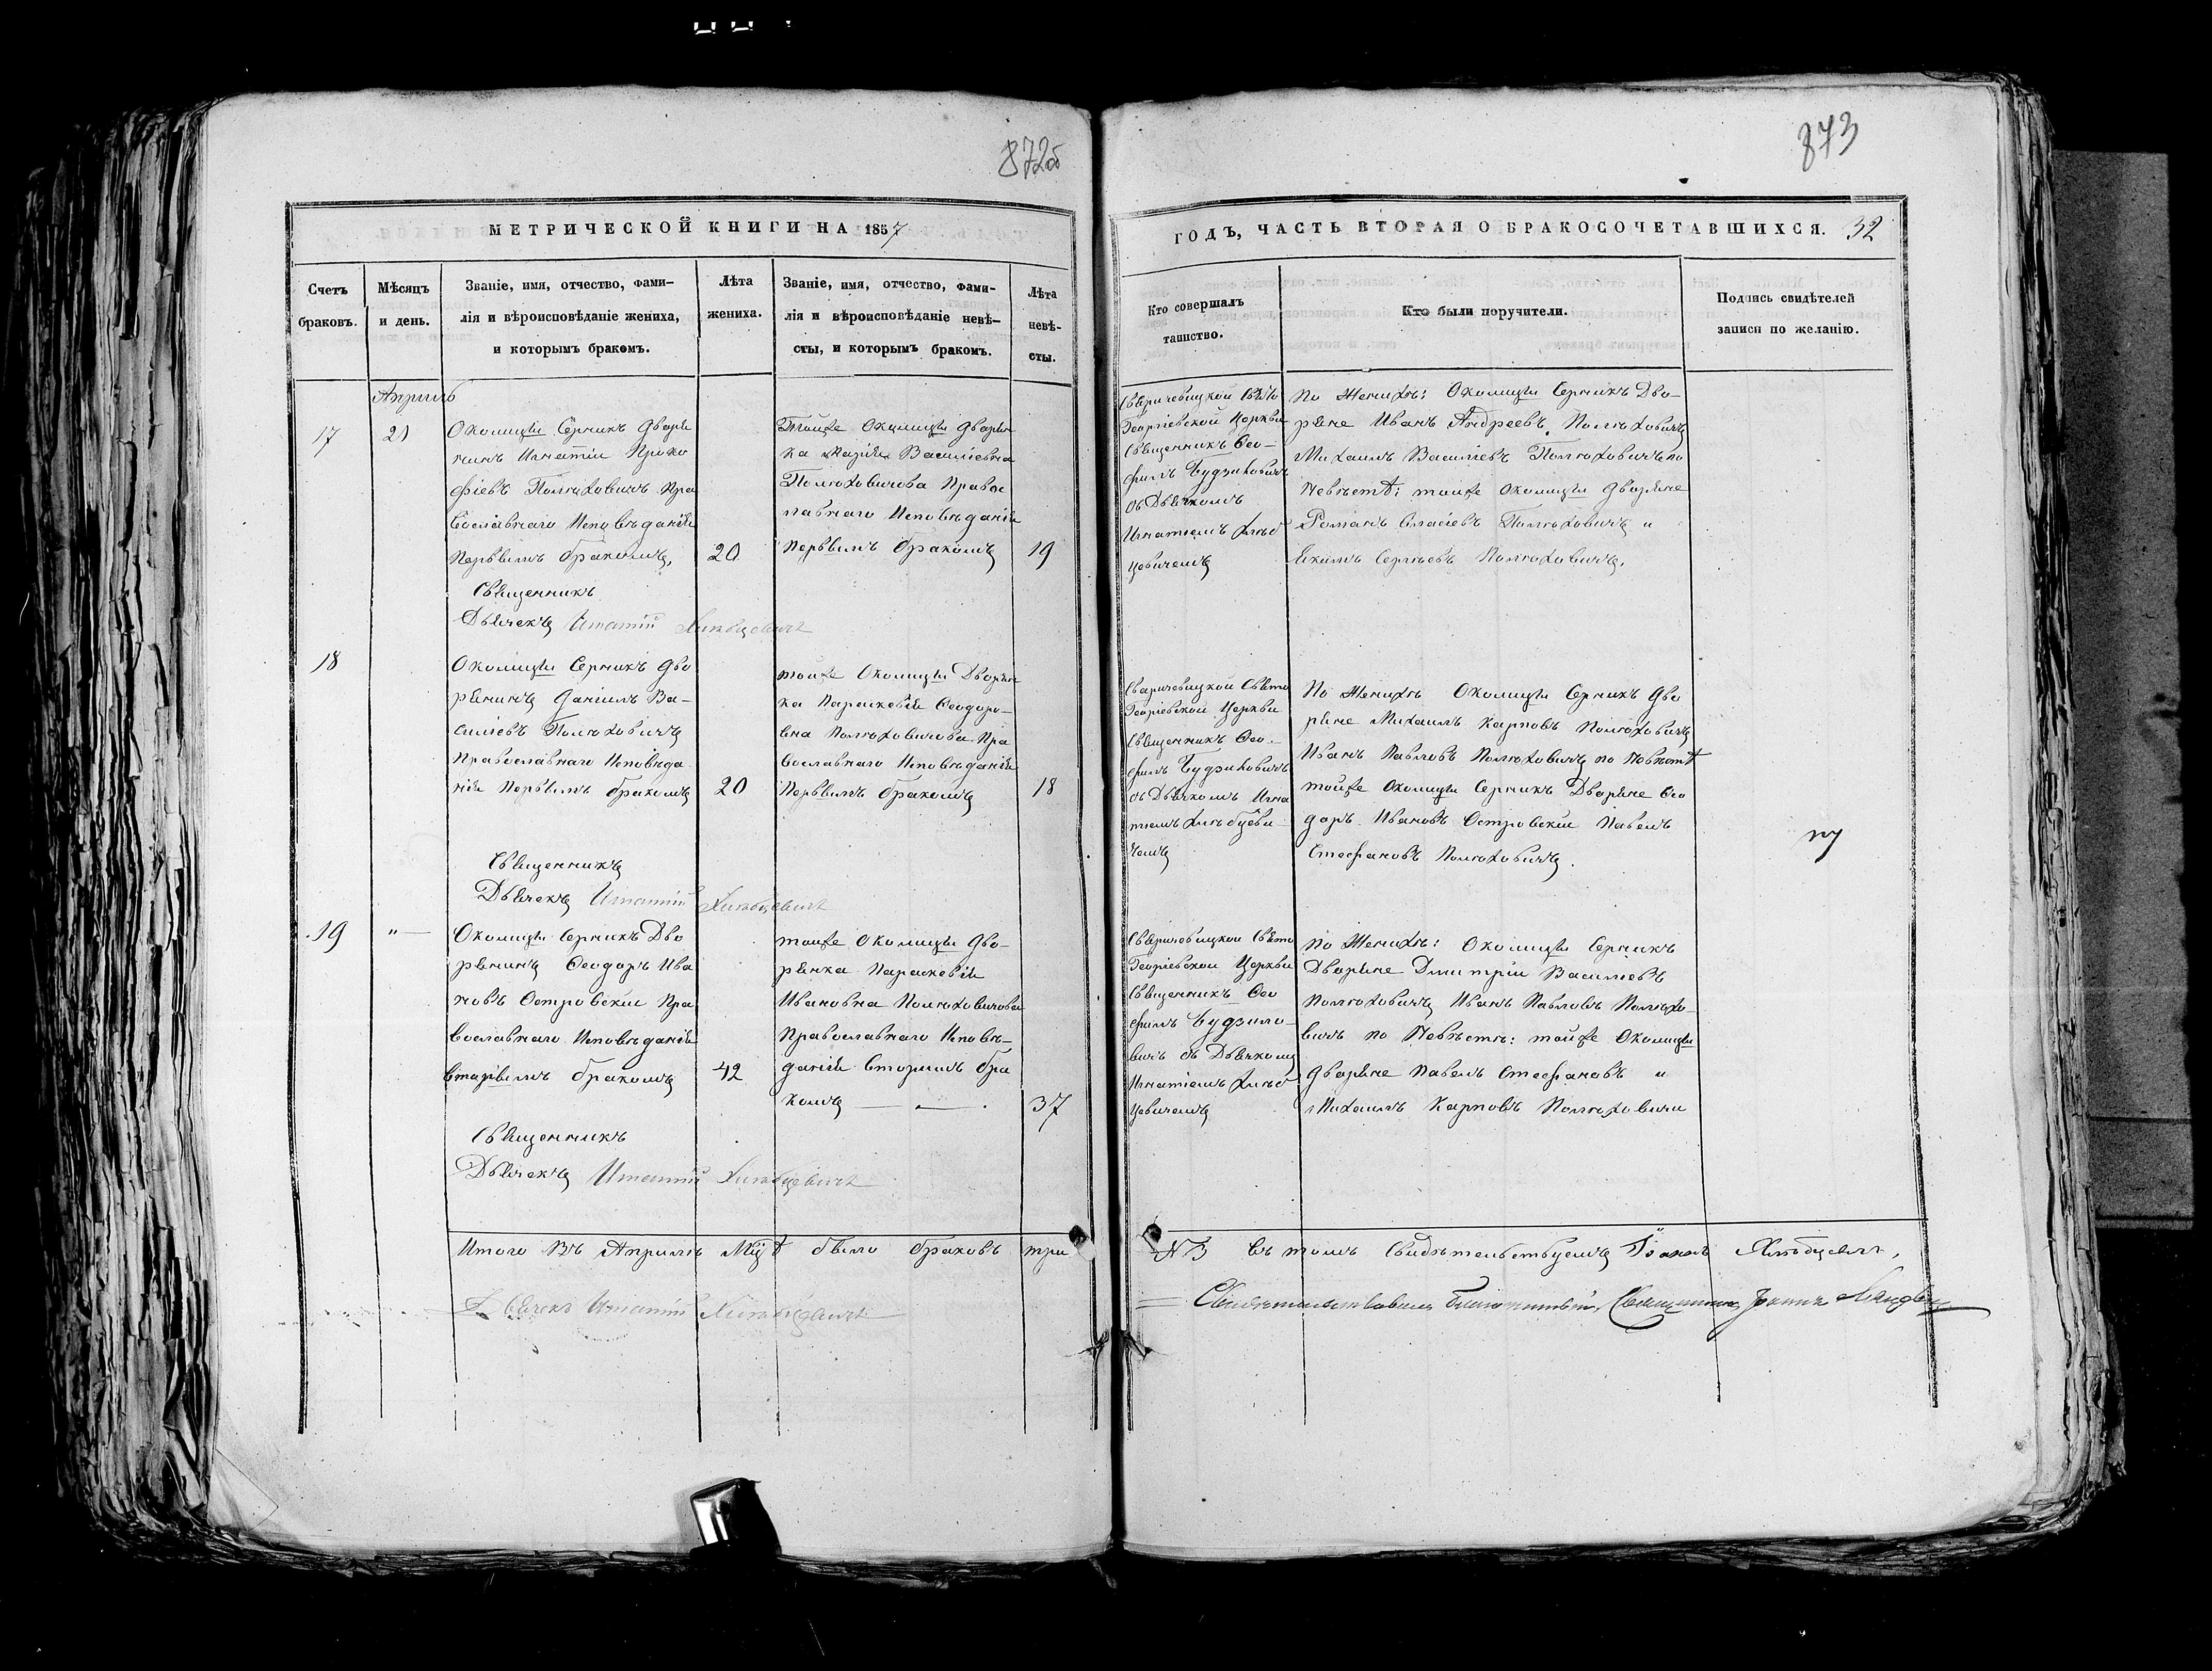 872об
МЕТРИЧЕСКОЙ КНИГИ НА 1857
Счетъ браковъ.
Мѣсяцъ и день.
Званіе, имя, отчество, фами-
лія и вѣроисповѣданіе жениха,
и которымъ бракомъ.
Лѣта жениха.
Званіе, имя, отчество, фами-
лія и вѣроисповѣданіе невѣ-
сты, и которымъ бракомъ.
Лѣта невѣ-
сты.
Апрель
17
21
Околицы Серникъ Дворя
нинъ Игнатіи Проко
фіевъ Полюховичъ Пра
вославнаго Исповѣданія
Первымъ бракомъ,
20
Тойже Околицы Дворян
ка Марія Василіевна
Полюховичова Правос
лавнаго Исповѣданія
Первымъ бракомъ
19
Священникъ
Дьячекъ Игнатій
18
Околицы Серникъ Дво
рянинъ Даніилъ Ва-
силіевъ Полюховичъ
Православнаго Исповѣда
нія Первымъ бракомъ
20
тойже Околицы Дворян
ка Параскевія Феодоро-
вна Полюховичова Пра
вославнаго Исповѣданія
Первымъ бракомъ
18
Священникъ
Дьячекъ Игнатій
19
"—
Околицы Серникъ Дво
рянинъ Феодоръ Ива
новъ Островскіи Пра
вославнаго Исповѣданія
вторымъ бракомъ
42
тойже Околицы Дво-
рянка Параскевія
Ивановна Полюховичова
Православнаго Исповѣ-
данія вторымъ бра
комъ
37
Священникъ
Дьячекъ Игнатій
Итого Въ Априлѣ Мцѣ было браковъ три
Дьячекъ Игнатій
873
ГОДЪ, ЧАСТЬ ВТОРАЯ О БРАКОСОЧЕТАВШИХСЯ. 32
Кто совершалъ
таинство.
Кто были поручители.
Подпись свидѣтелей
записи по желанію.
Сваричевицкой Свято
Георгіевской Церкви
Священникъ Фео-
филъ
съ Дьячкомъ
Игнатіемъ
По Женихѣ: Околицы Серникъ Дво-
ряне Иванъ Андреевъ Полюховичъ
Михаилъ Василіевъ Полюховичъ по
Невѣстѣ: тойже Околицы Дворяне
Романъ Полюховичъ и
Екимъ Сергѣевъ Полюховичъ.
Сваричевицкой Свято
Георгіевской Церкви
Священникъ Фео-
филъ
съ Дьячкомъ Игна
тіемъ
По Женихѣ Околицы Серникъ Дво
ряне Михаилъ Карповъ Полюховичъ
Иванъ Павловъ Полюховичъ по Невѣстѣ
тойже Околицы Серникъ Дворяне Фео
доръ Ивановъ Островскіи Павелъ
Стефановъ Полюховичъ.
Сваричевицкой Свято
Георгіевской Церкви
Священникъ Фео
филъ
съ Дьячкомъ
Игнатіемъ
По Женихѣ: Околицы Серникъ
Дворяне Дмитріи Василіевъ
Полюховичъ Иванъ Павловъ Полюхо-
вичъ по Невѣстѣ: тойже Околицы
Дворяне Павелъ Стефановъ и
Михаилъ Карповъ Полюховичи
№ 3 въ томъ свидѣтельствуемъ
Священникъ